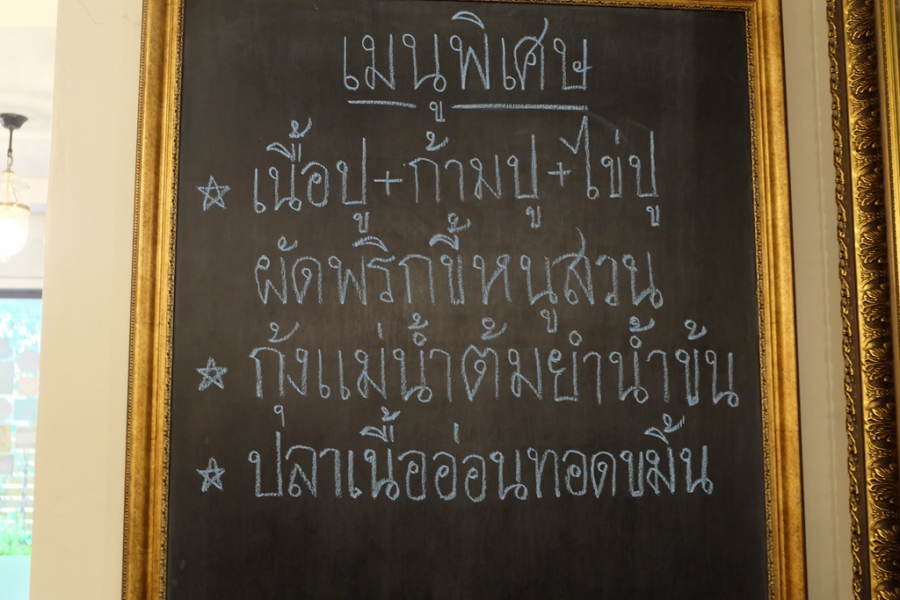 เมนูพิเศษ
☆ เนื้อปู+ก้ามปู+ไข่ปู
ผัดพริกขี้หนูสวน
☆ กุ้งแม่น้ำต้มยำน้ำข้น
☆ ปลาเนื้ออ่อนทอดขมิ้น